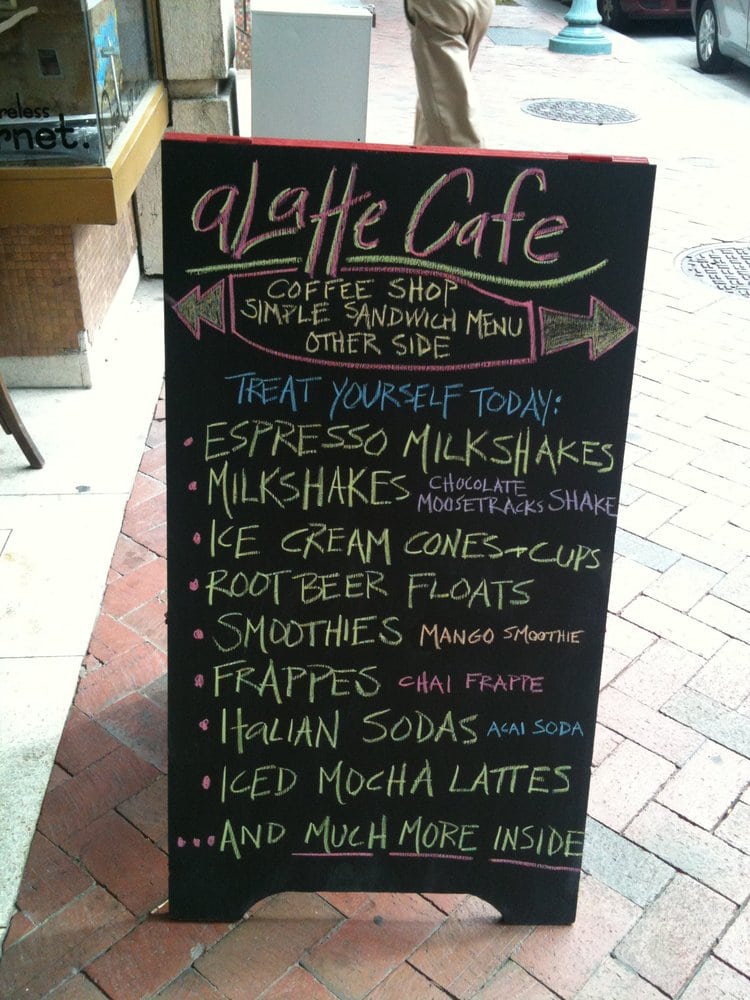 reless
rnet.
aLatte Cafe
COFFEE SHOP
SIMPLE SANDWICH MENU
OTHER SIDE
TREAT YOURSELF TODAY:
• ESPRESSO MILKSHAKES
• MILKSHAKES CHOCOLATE MOOSETRACKS SHAKE
• ICE CREAM CONES + CUPS
• ROOT BEER FLOATS
• SMOOTHIES MANGO SMOOTHIE
• FRAPPES CHAI FRAPPE
• ITaLIAN SODAS ACAI SODA
• ICED MOCHA LATTES
...AND MUCH MORE INSIDE